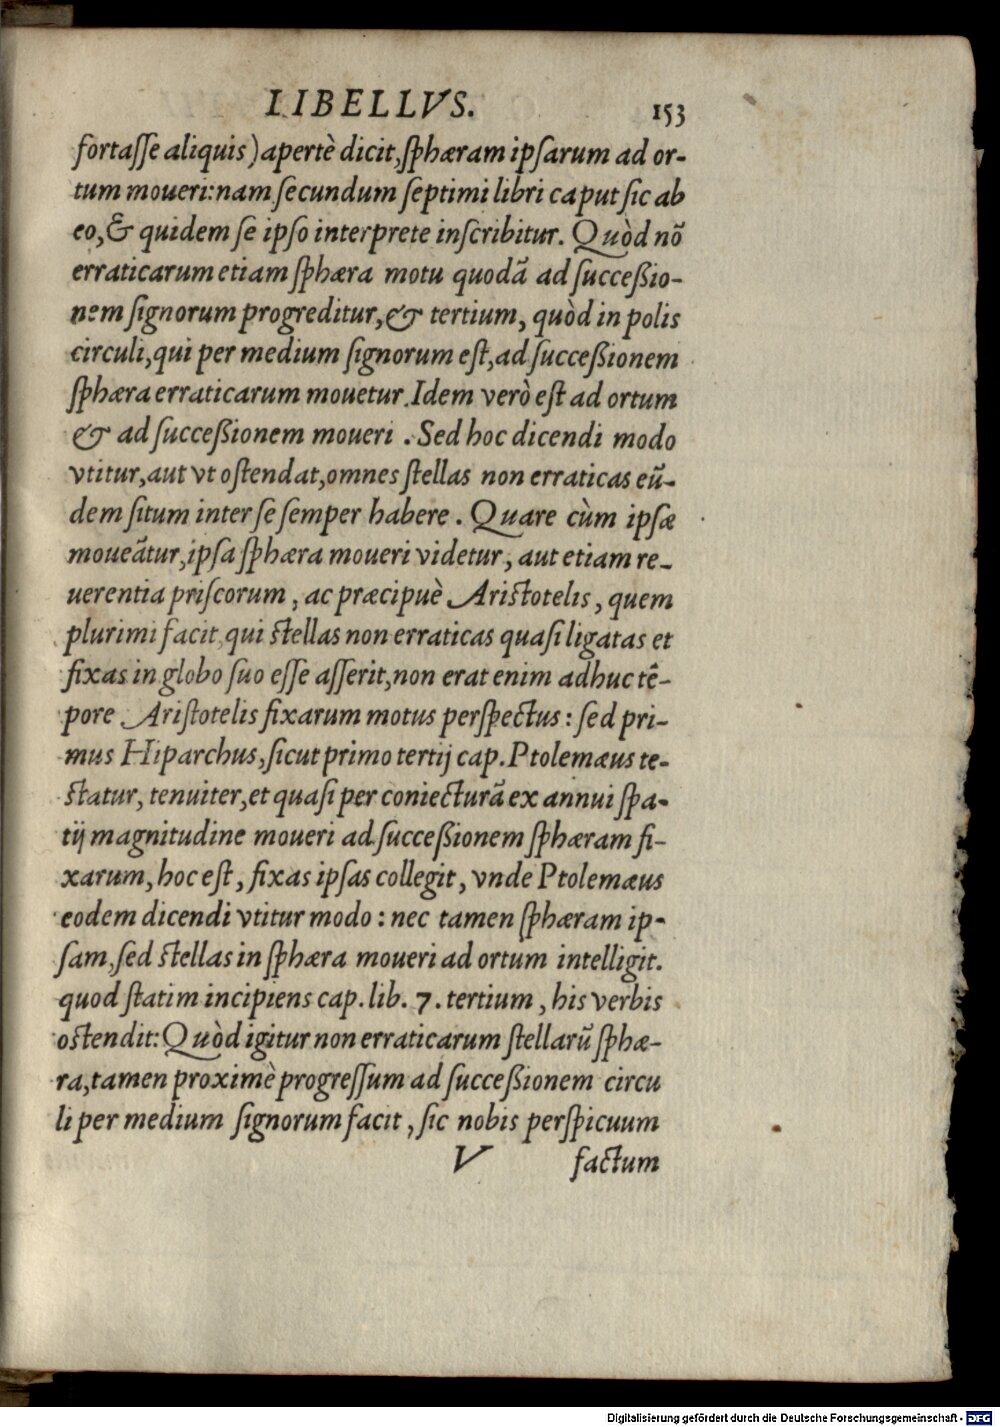 LIBELLVS. 153
fortasse aliquis) apertè dicit, sphæram ipsarum ad or-
tum moueri: nam secundum septimi libri caput sic ab
eo, & quidem se ipso interprete inscribitur. Quòd nō
erraticarum etiam sphæra motu quodā ad successio-
nem signorum progreditur, & tertium, quòd in polis
circuli, qui per medium signorum est, ad successionem
sphæra erraticarum mouetur. Idem verò est ad ortum
& ad successionem moueri. Sed hoc dicendi modo
vtitur, aut vt ostendat, omnes stellas non erraticas eū-
dem situm inter se semper habere. Quare cùm ipsæ
moueātur, ipsa sphæra moueri videtur, aut etiam re-
uerentia priscorum, ac præcipuè Aristotelis, quem
plurimi facit, qui stellas non erraticas quasi ligatas et
fixas in globo suo esse asserit, non erat enim adhuc tē-
pore Aristotelis fixarum motus perspectus: sed pri-
mus Hiparchus, sicut primo tertij cap. Ptolemæus te-
statur, tenuiter, et quasi per coniecturā ex annui spa-
tij magnitudine moueri ad successionem sphæram fi-
xarum, hoc est, fixas ipsas collegit, vnde Ptolemæus
eodem dicendi vtitur modo: nec tamen sphæram ip-
sam, sed stellas in sphæra moueri ad ortum intelligit.
quod statim incipiens cap. lib. 7. tertium, his verbis
ostendit: Quòd igitur non erraticarum stellarū sphæ-
ra, tamen proximè progressum ad successionem circu
li per medium signorum facit, sic nobis perspicuum
V factum
Digitalisierung gefördert durch die Deutsche Forschungsgemeinschaft - DFG